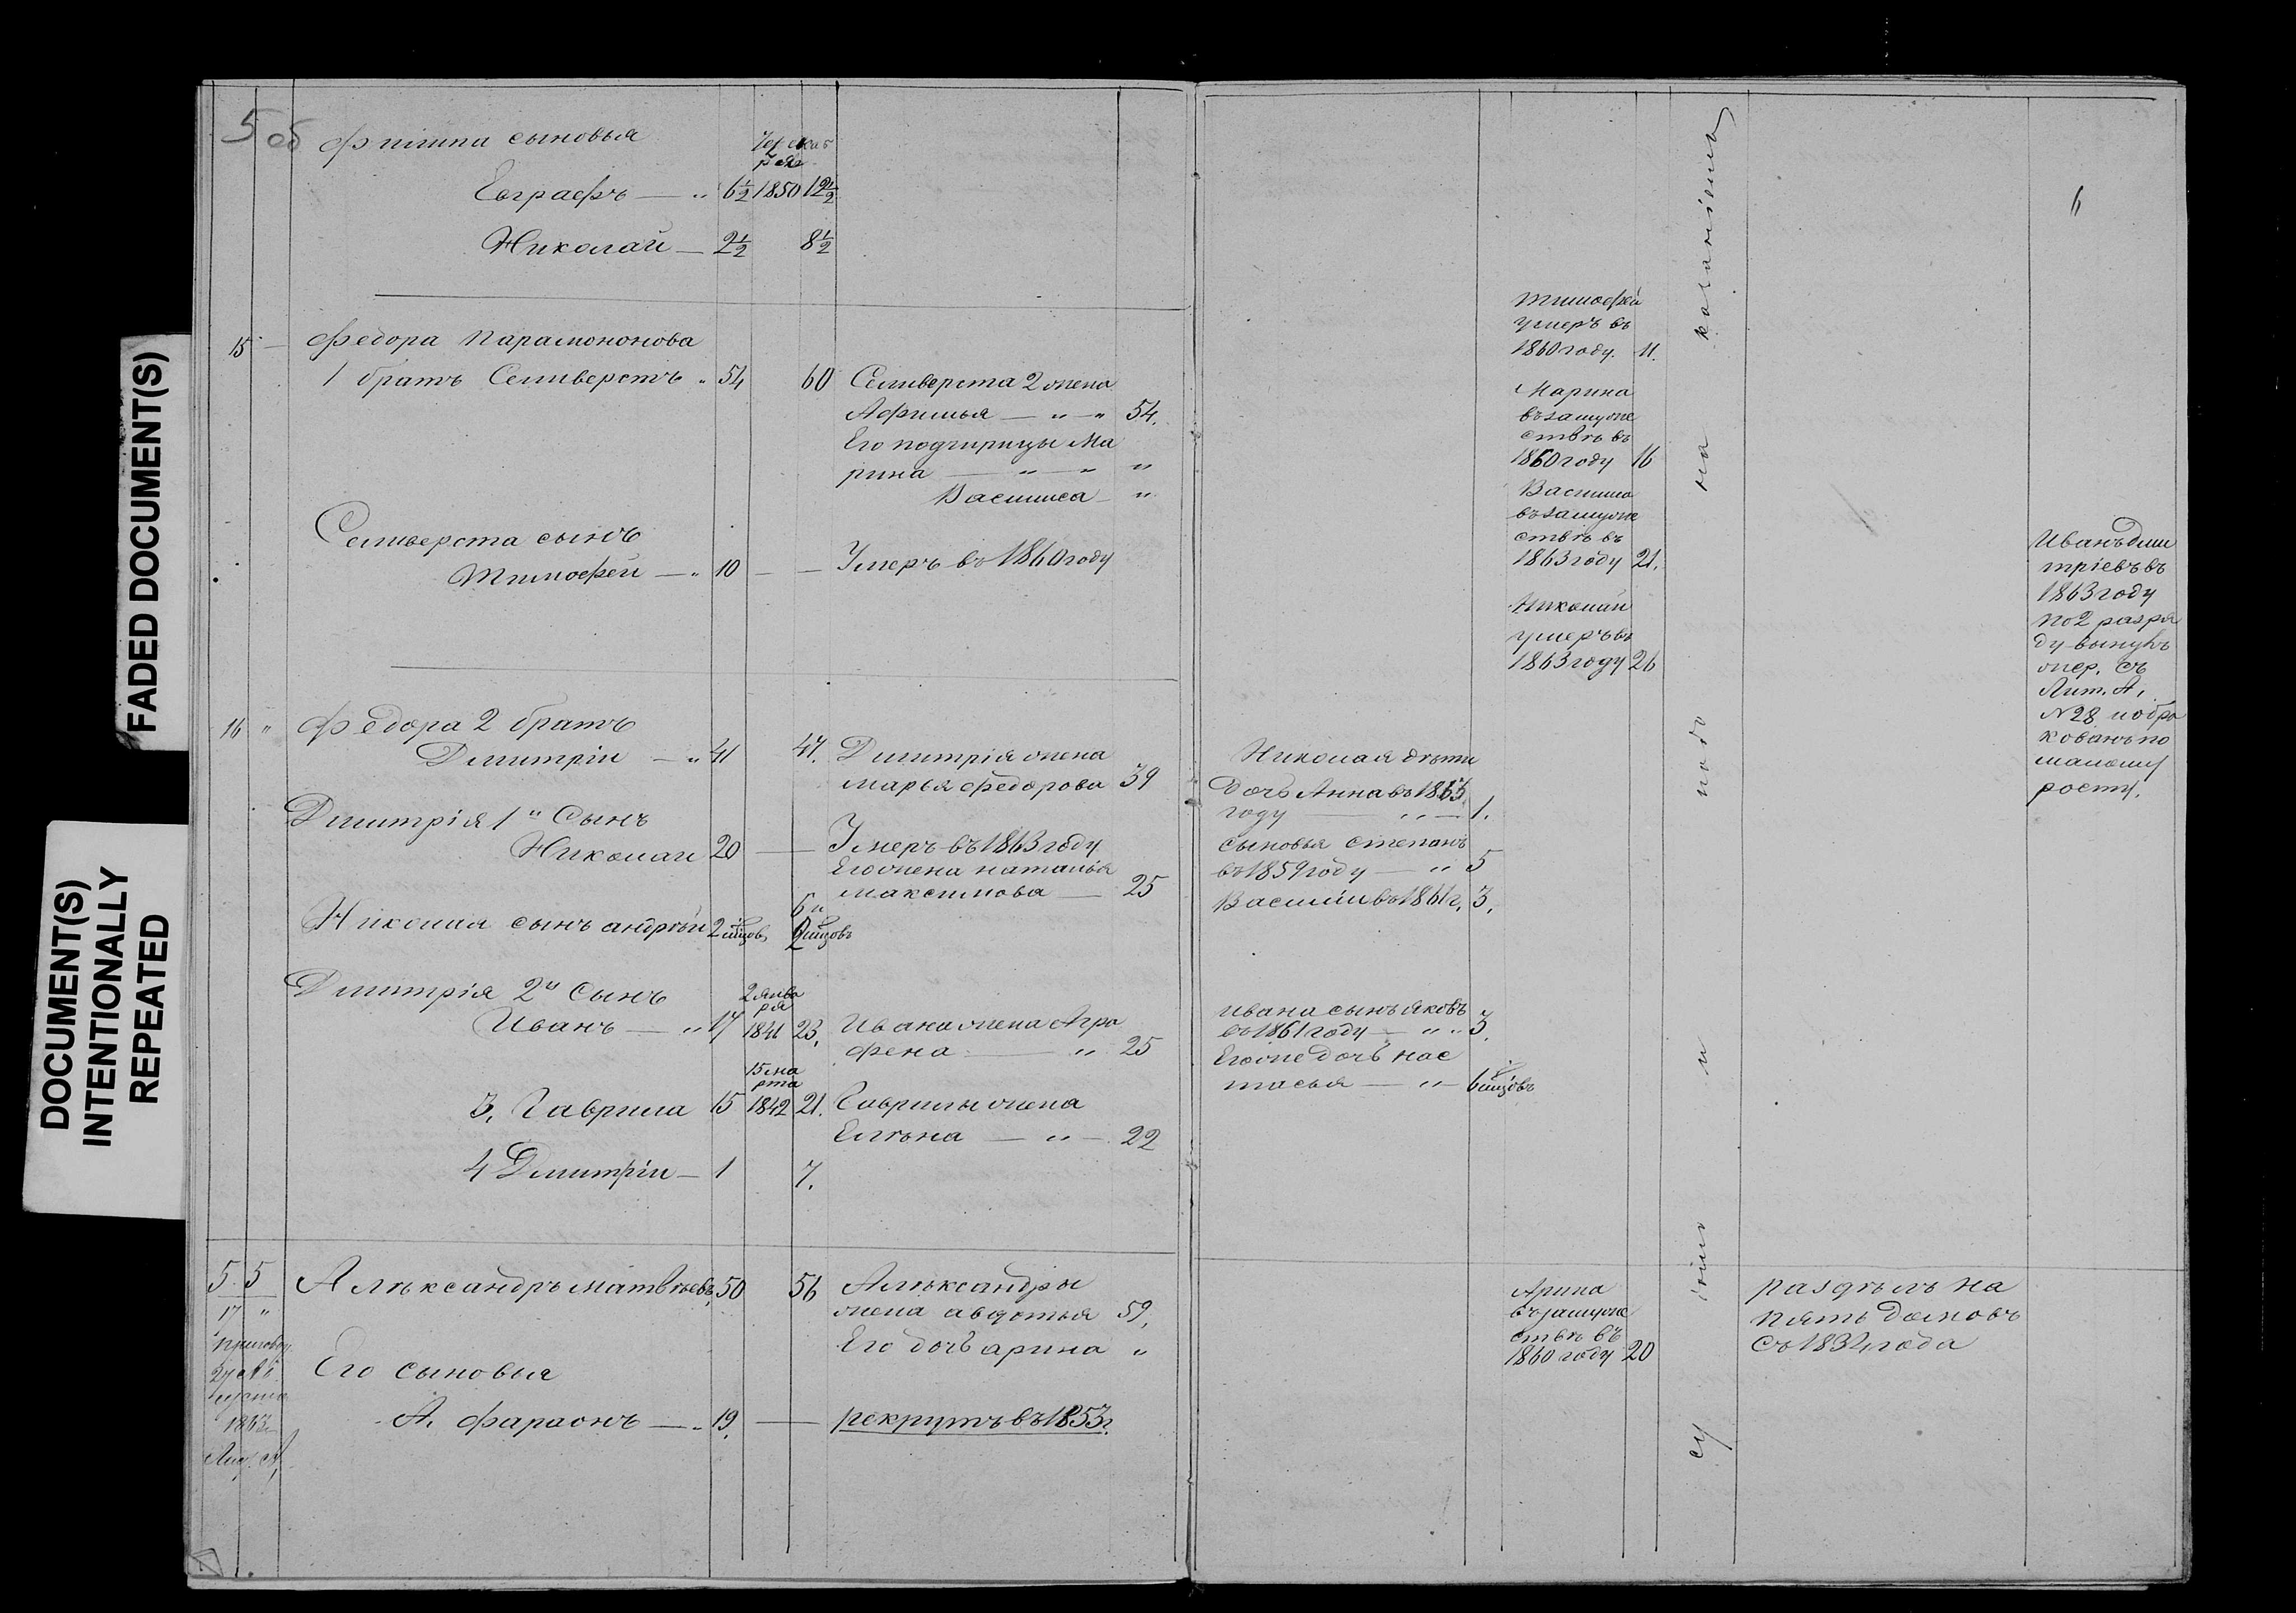 FADED DOCUMENT(S)
DOCUMENT(S)
INTENTIONALLY
REPEATED
5 об
Филипа сыновья
Евграфъ — " 6½ 1850 12½
Николай — 2½ 8½
15 — Федора Парамононова
1 братъ Селиверстъ " 54 60 Селиверста 2 жена
Афимья — " — " 54.
Его подчирицы Ма
рина — " — " "
Василиса — "
Селиверста сынъ
Тимофей — " 10 — — Умеръ въ 1860 году
16 " Федора 2 братъ
Дмитріи — " 41 47. Дмитрія жена
марья федорова 39
Дмитрія 1й Сынъ
Николаи 20 — Умеръ въ 1863 году
Его жена наталья
максимова — 25
Николая сынъ андрѣй 2 мѣцов, 6 и 2 мѣцовъ
Дмитрія 2й Сынъ
2 янва
ря
Иванъ — " 17 1841 23, Ивана жена Агра
фена — " 25
15 ма
рта
3, Гаврила 15 1842 21. Гаврилы жена
Елѣна — " — 22
4 Дмитріи — 1 7.
5. 5 Алѣксандръ матвѣевъ, 50 56 Алѣксандры
17 " жена авдотья 59,
Его дочь арина "
Его сыновья
1863
А, фараонъ — " 19, — рекрутъ въ 1853 г.
6
Тимофей
умеръ въ
1860 году. 11.
Марина
въ замуже
ствѣ въ
1860 году 16
Василиса
въ замуже
ствѣ въ
1863 году 21.
Николаи
умеръ въ
1863 году 26
Николая дѣти
Дочь Анна въ 1863
году — " — 1.
Сыновья степанъ
въ 1859 году — " 5
Василіи въ 1861 г, 3,
ивана сынъ яковъ
въ 1861 году — " " 3,
Его же дочь нас
тасья — " — 6 мѣцовъ
Арина
въ замуже
ствѣ въ
1860 году 20
на
и
раздѣлъ на
пять домовъ
съ 1834 года
Иванъ дми
тріевъ въ
1863 году
по 2 разря
ду вынулъ
жер. съ
Лит. А,
№ 28 и обра
кованъ по
малому
росту.